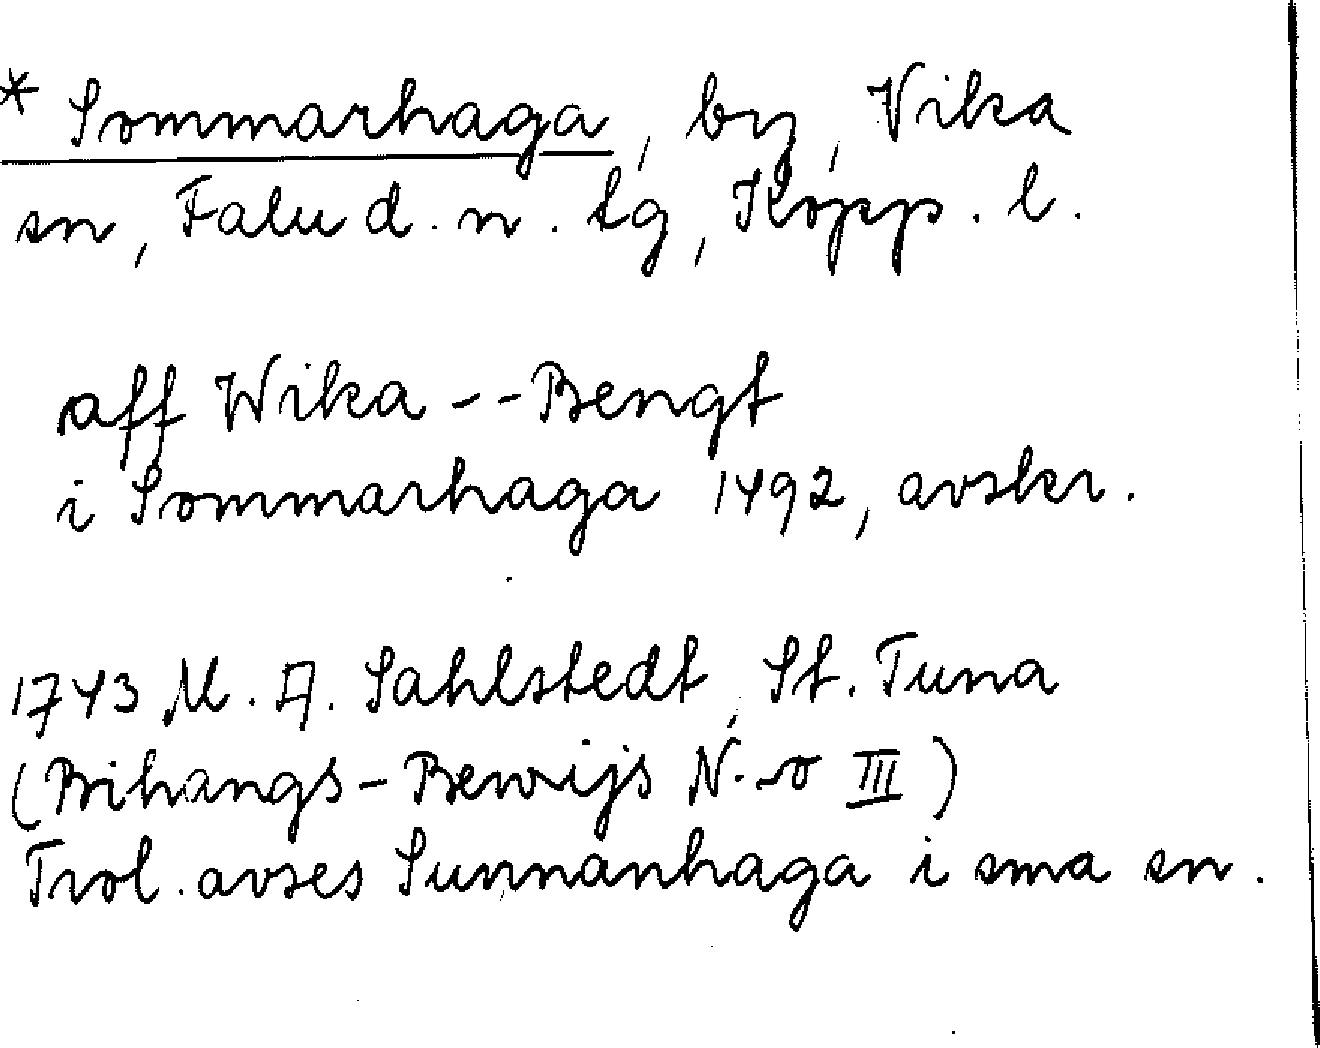 * Sommarhaga, by, Vika
sn, Falu d. n. tg, Kopp. l.
aff Wika -- Bengt
i Sommarhaga 1492, avskr.
1743 M. A. Sahlstedt, St. Tuna
(Bihangs-Bewijs N.-o III)
Trol. avses Sunnanhaga i sma sn.